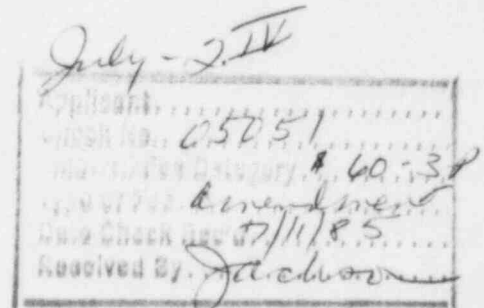 July - 2 IV
Applicant..........
Check No. 05051
Amount/Fee Category. $60 - 3P
Type of Fee amendment
Date Check Rec'd. 7/11/85
Received By. Jackson